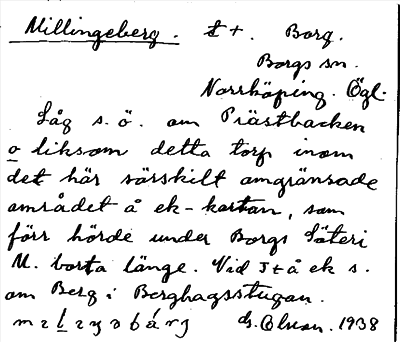 Millingeberg. t +. Borg.
Borgs sn.
Norrköping. Ögl.
Låg s. ö. om Prästbacken
o liksom detta torp inom
det här särskilt omgränsade
området å ek-kartan, som
förr hörde under Borgs Säteri
M. borta länge. Vid J t å ek s.
om Berg i Berghagsstugan.
1938